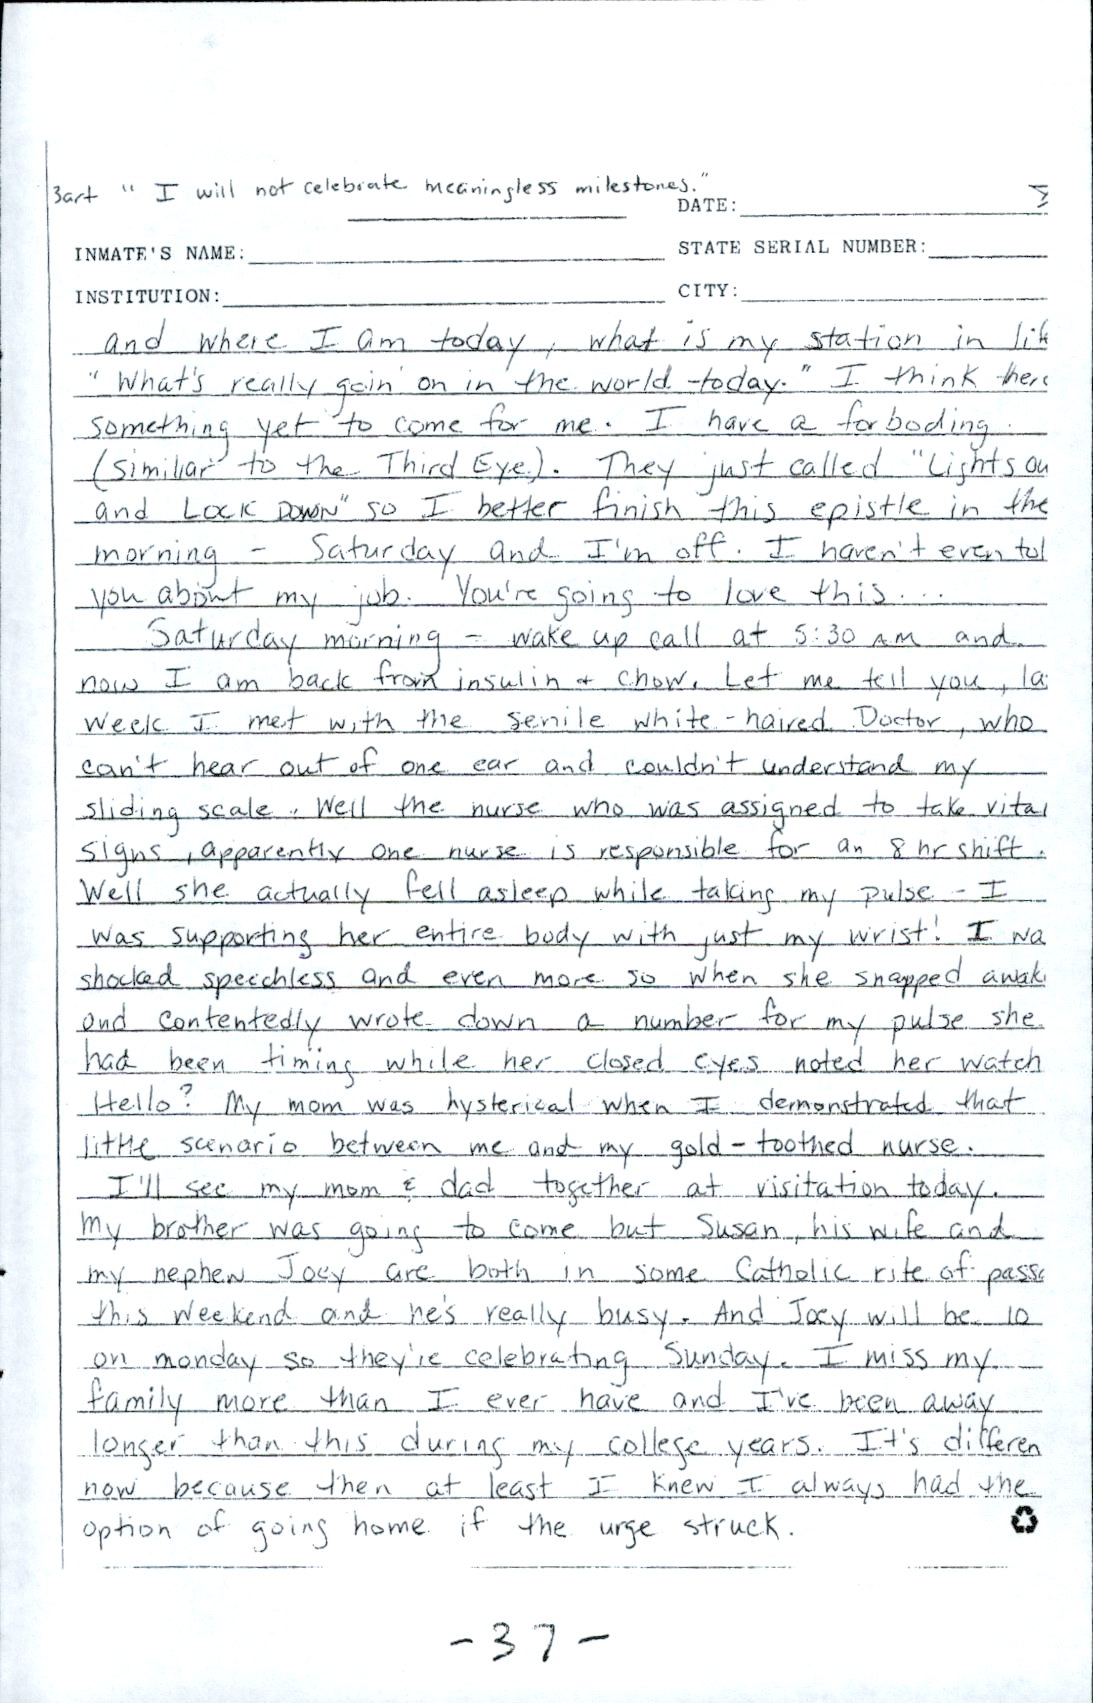 Bart " I will not celebrate meaningless milestones."
DATE:
INMATE'S NAME:
STATE SERIAL NUMBER:
INSTITUTION:
CITY:
and where I am today, what is my station in lif
"What's really goin' on in the world today." I think there
something yet to come for me. I have a forboding
(similiar to the Third Eye). They just called "Lights ou
and LOCK DOWN" so I better finish this epistle in the
morning - Saturday and I'm off. I haven't even tol
you about my job. You're going to love this...
Saturday morning - wake up call at 5:30 AM and
now I am back from insulin & chow. Let me tell you, la
week I met with the senile white-haired Doctor, who
can't hear out of one ear and couldn't understand my
sliding scale. Well the nurse who was assigned to take vital
signs, apparently one nurse is responsible for an 8 hr shift.
Well she actually fell asleep while taking my pulse - I
was supporting her entire body with just my wrist! I wa
shocked speechless and even more so when she snapped awak
and contentedly wrote down a number for my pulse she
had been timing while her closed eyes noted her watch
Hello? My mom was hysterical when I demonstrated that
little scenario between me and my gold-toothed nurse.
I'll see my mom & dad together at visitation today.
My brother was going to come but Susan, his wife and
my nephew Joey are both in some Catholic rite of passa
this weekend and he's really busy. And Joey will be 10
on monday so they're celebrating Sunday. I miss my
family more than I ever have and I've been away
longer than this during my college years. It's differen
now because then at least I knew I always had the
option of going home if the urge struck.
-37-